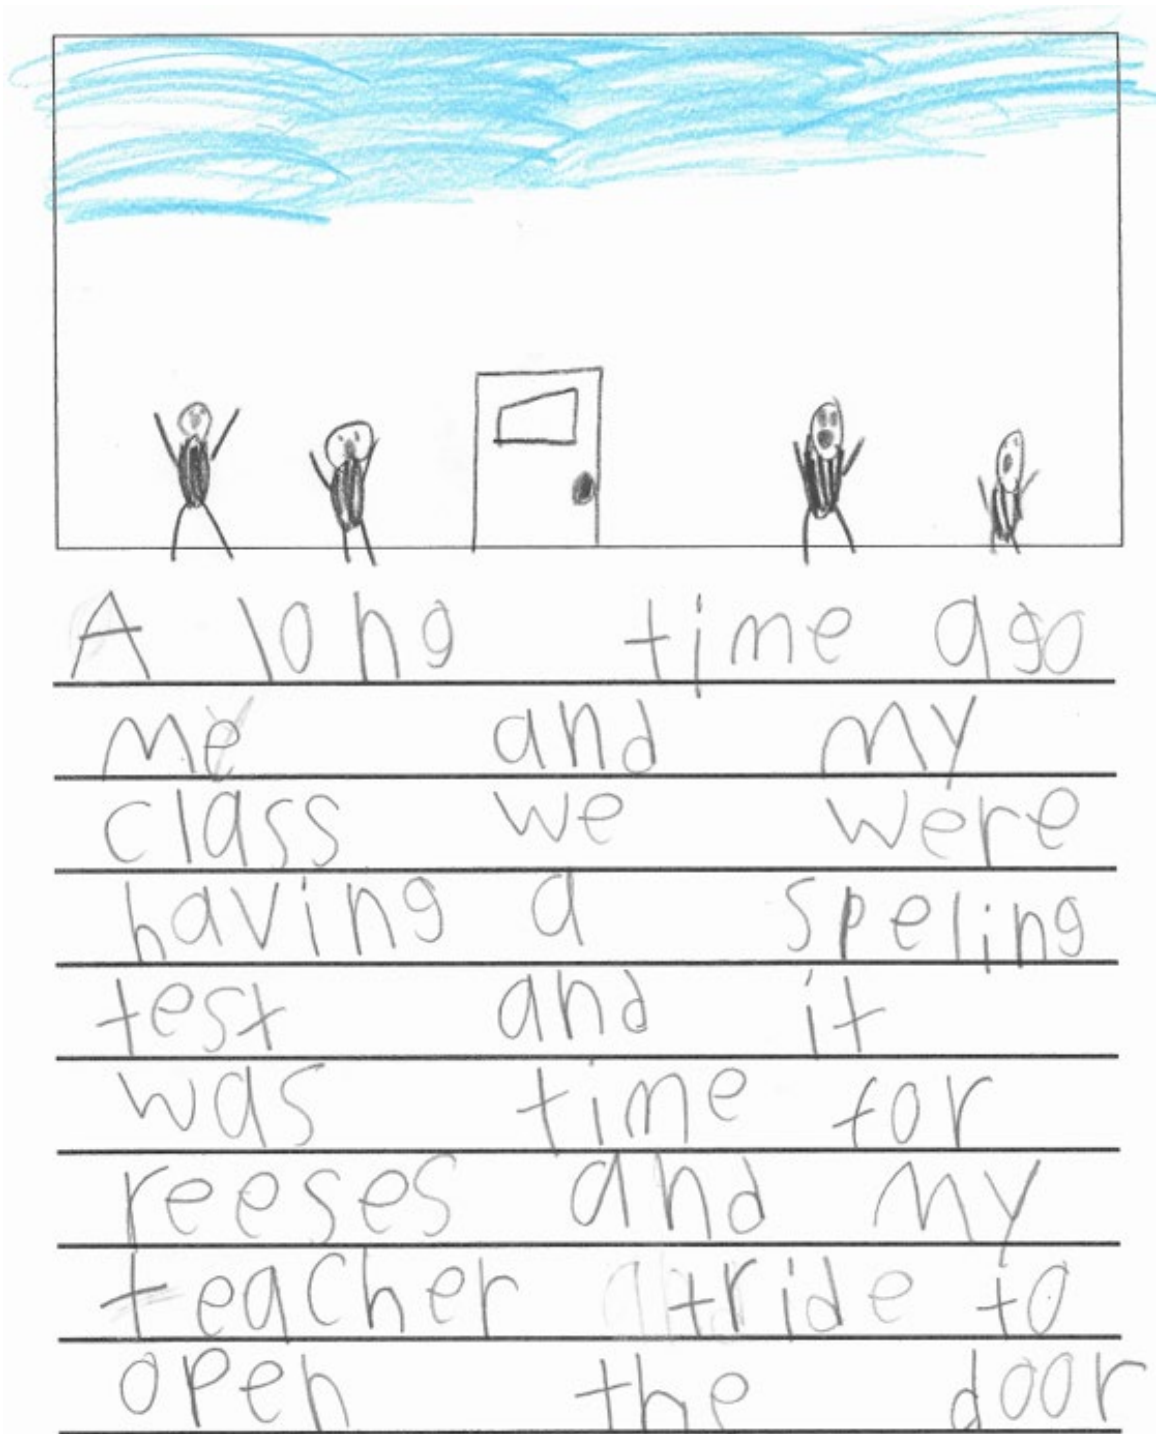 A long time ago
me and my
class we were
having a speling
test and it
was time for
reeses and my
teacher tride to
open the door